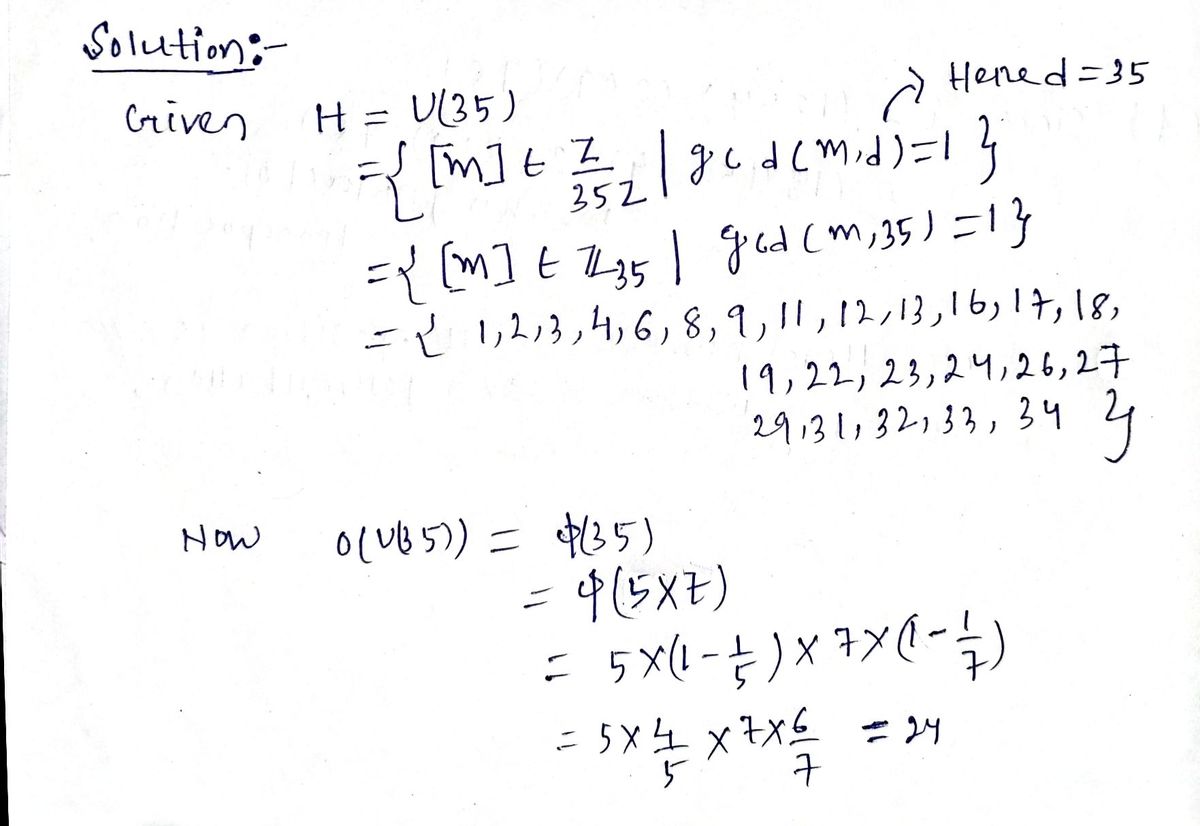 Solution:-
Given H = U(35) → Here d = 35
= { [m] ∈ Z/35Z | gcd(m,d)=1 }
= { [m] ∈ ℤ35 | gcd(m,35) =1 }
= { 1,2,3,4,6,8,9,11,12,13,16,17,18,
19,22,23,24,26,27
29,31,32,33,34 }
Now o(U(35)) = φ(35)
= φ(5×7)
= 5×(1-1/5)×7×(1-1/7)
= 5×4/5×7×6/7 = 24